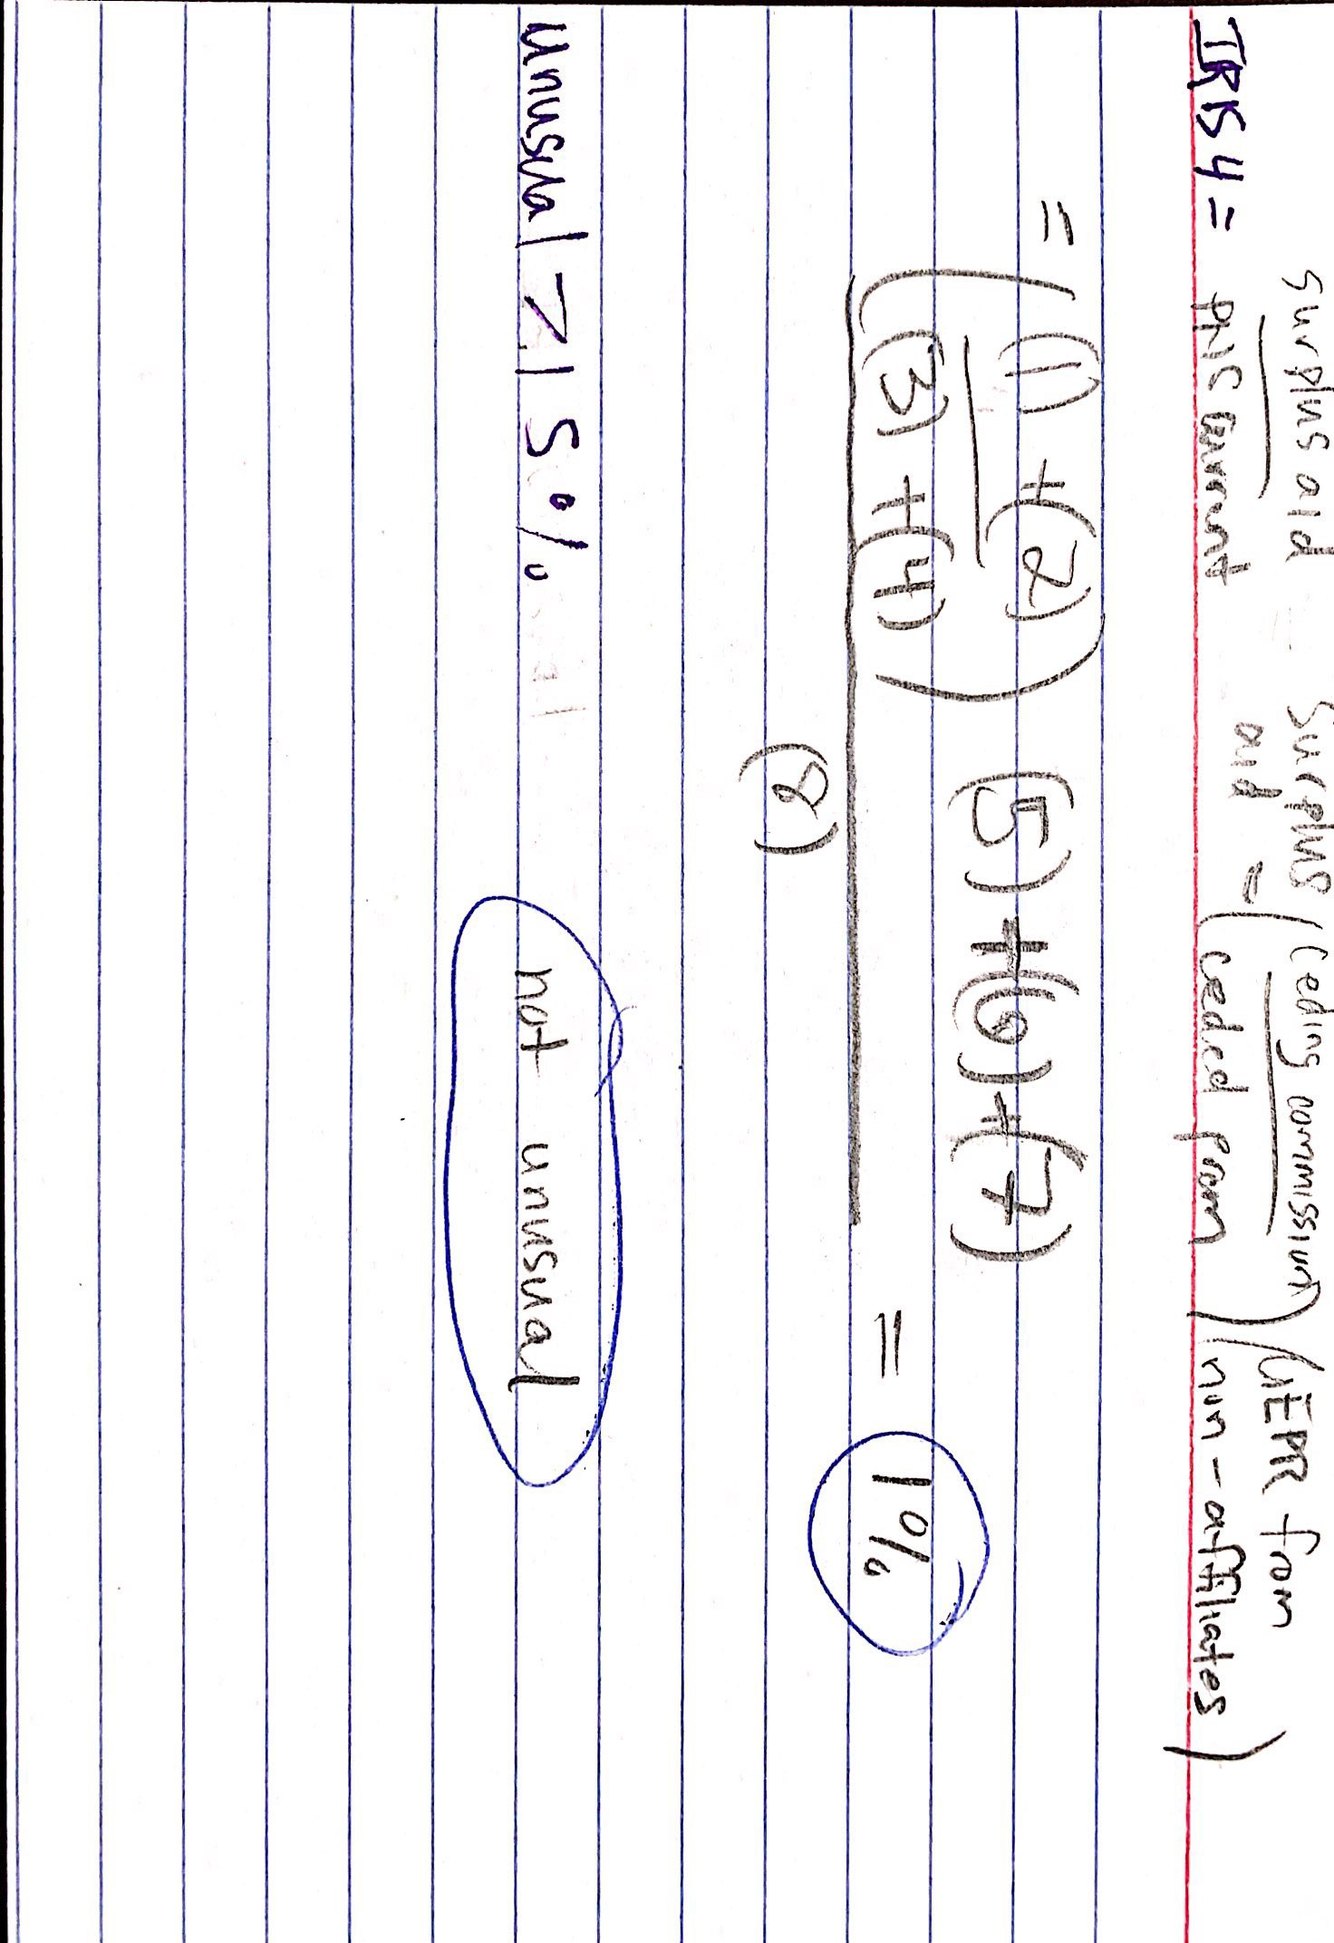 surplus aid
IRIS 4 = PHS current
Surplus aid = (ceding commission / ceded prem) (UEPR from non-affiliates)
= ((1) + (2) / (3) + (4)) (5) + (6) + (7) = 1%
(8)
unusual > 15%
not unusual